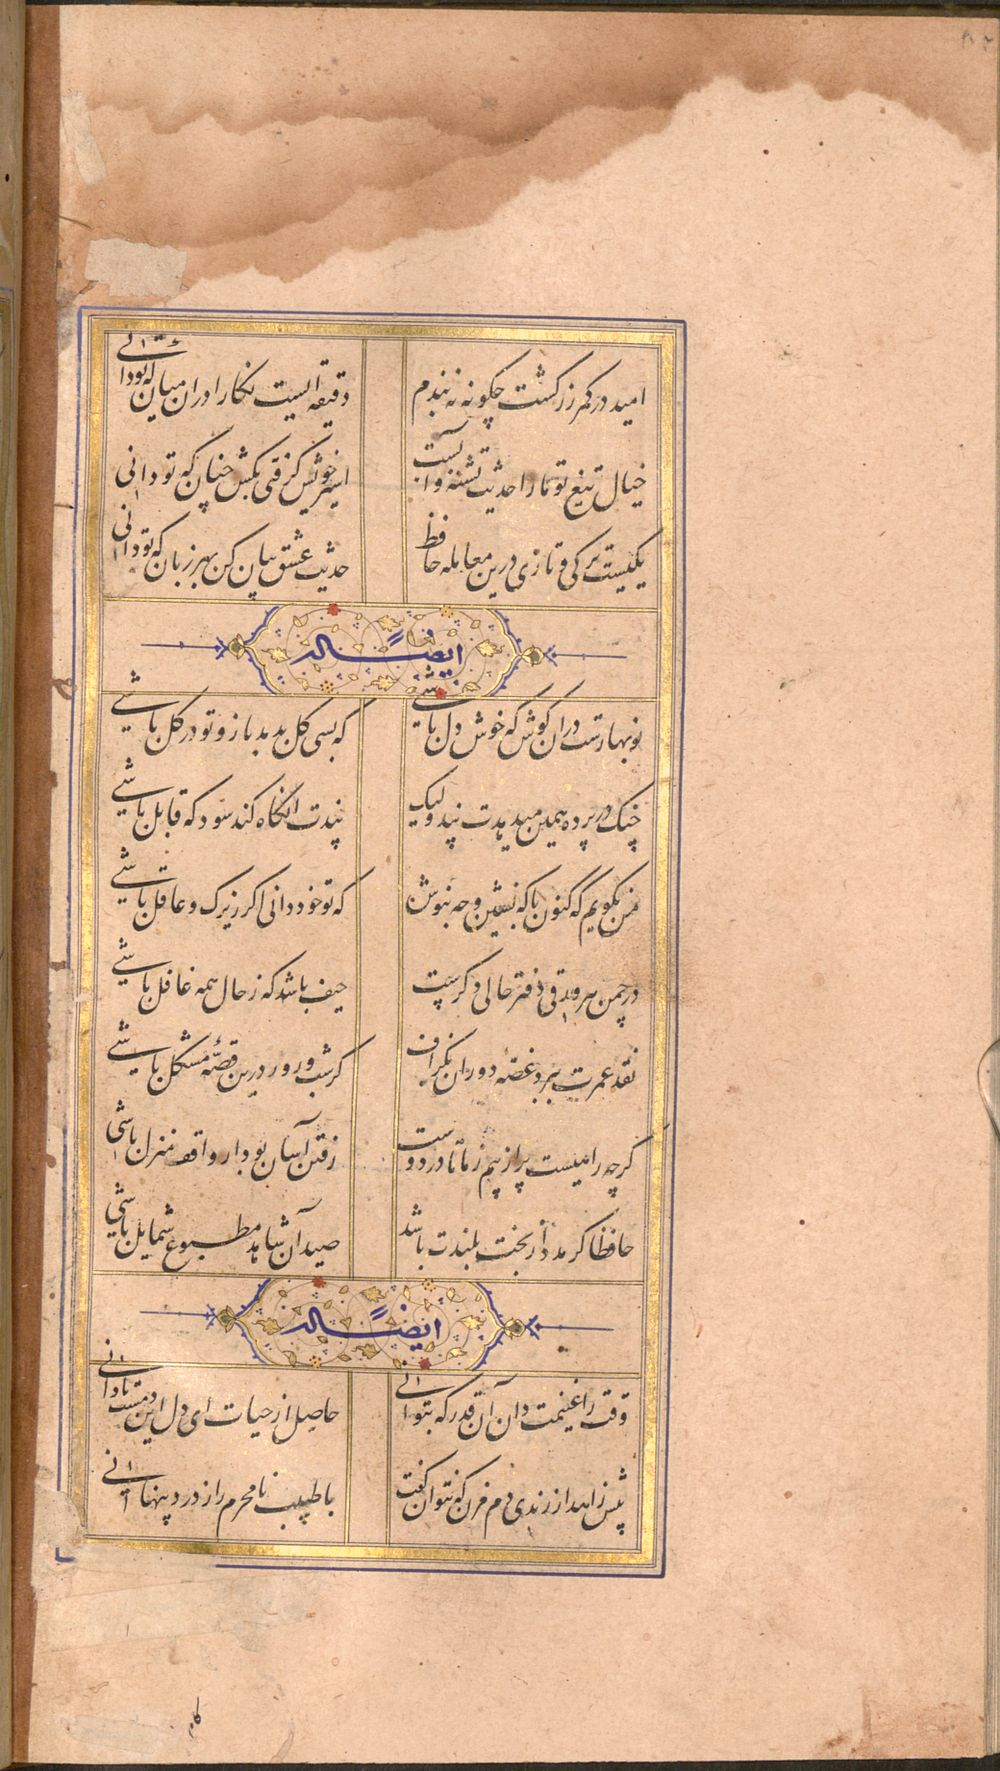 امید در کمر زرکشت چگونه نه بندم دقیقه ایست نگارا در ان میان که تو دانی
خیال تیغ تو با ما حدیث تشنه و آبست اسیر خویش گرفتی بکش چنان که تو دانی
یکیست ترکی و تازی درین معامله حافظ حدیث عشق بیان کن بهر زبان که تو دانی
ایضاً له
نوبهارست دران کوش که خوش دل باشی که بسی گل بدمد باز و تو در گل باشی
چنگ در پرده همین میدهدت پند ولیک پندت انگاه کند سود که قابل باشی
من نگویم که کنون با که نشین و چه بنوش که تو خود دانی اگر زیرک و عاقل باشی
در چمن هر ورقی دفتر حالی دگرست حیف باشد که ز حال همه غافل باشی
نقد عمرت ببرد غصه دوران بگزاف گر شب و روز درین قصّهٔ مشکل باشی
گرچه راهیست پر از بیم ز ما تا در دوست رفتن آسان بود ار واقف منزل باشی
حافظا گر مدد از بخت بلندت باشد صید آن شاهد مطبوع شمایل باشی
ایضاً له
وقت را غنیمت دان آن قدر که بتوانی حاصل از حیات ای دل این دمست تا دانی
پیش زاهد از رندی دم مزن که نتوان گفت با طبیب نامحرم راز درد پنهانی